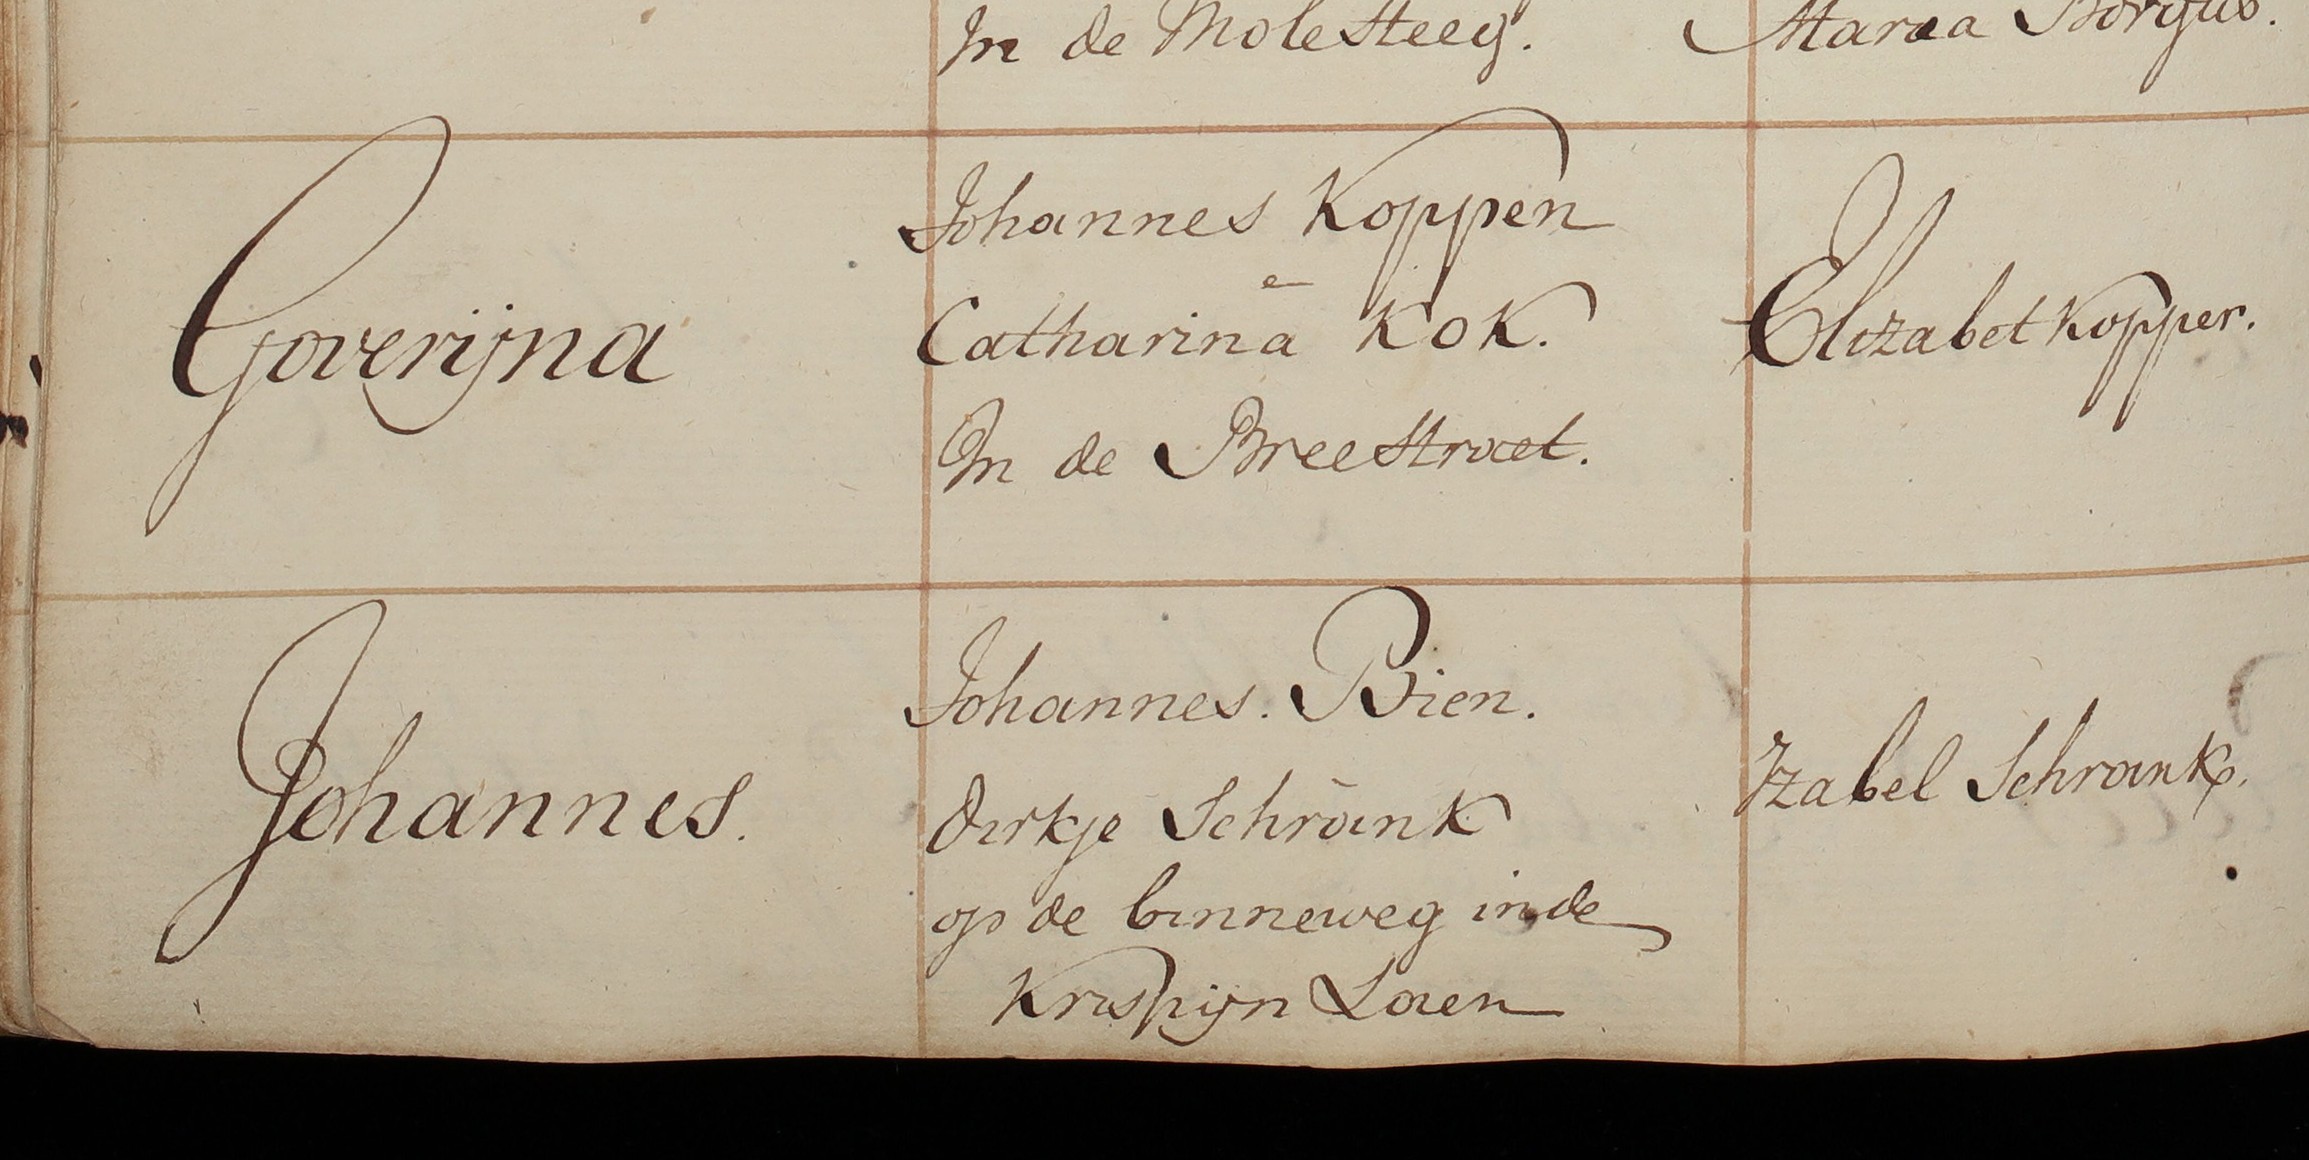 In de Molesteeg.
Maria Borgus.
Goverijna
Johannes Koppen
e
Catharina Kok.
In de Breestraet.
Elizabet Kopper.
Johannes.
Johannes. Bien.
Dirkje Schrank
op de binneweg in de
Krispijn Laen
Izabel Schrank.